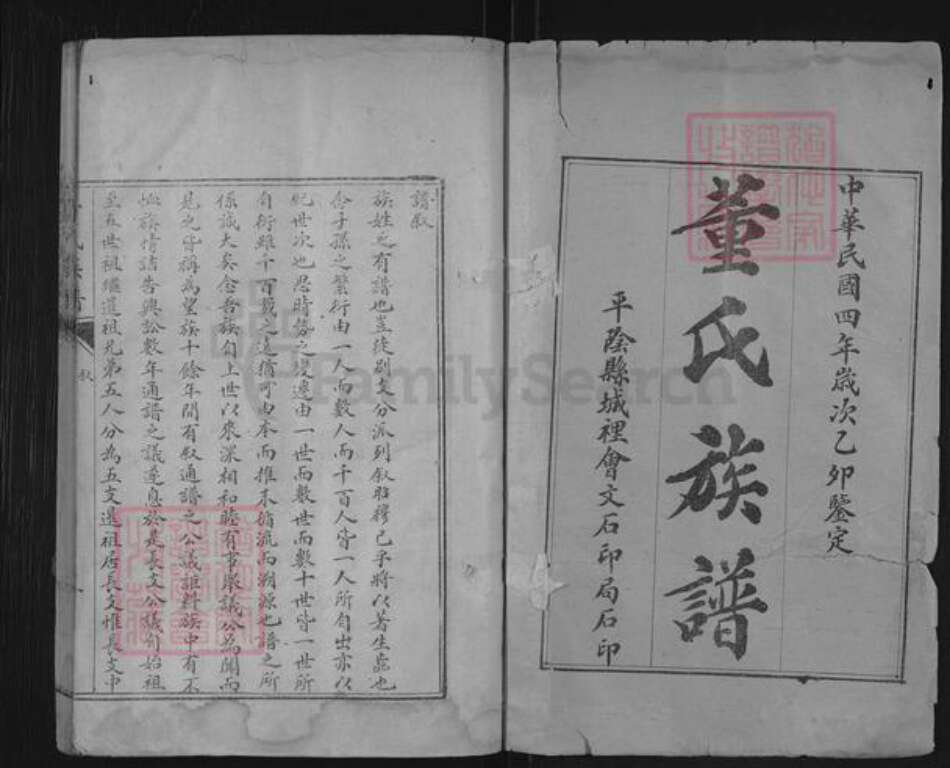 中華民國四年歲次乙卯鑒定
董氏族譜
平陰縣城裡會文石印局石印
譜敘
族姓之有譜也豈徒別支分派列敘昭穆已乎將以著生齒也
念子孫之繁衍由一人而數人而千百人皆一人所自出亦以
紀世次也思時勢之變遷由一世而數世而數十世皆一世所
自衍雖千百載之遠猶可由本而推末循流而溯源也譜之所
係誠大矣念吾族自上世以來深相和睦有事眾議公為聞而
見之皆稱為望族十餘年間有敘通譜之公議詎料族中有不
恤族情詰告興訟數年通譜之議遂息於是長支公議自始祖
至五世祖繼道祖兄弟五人分為五支進祖居長支惟長支中
FamilySearch